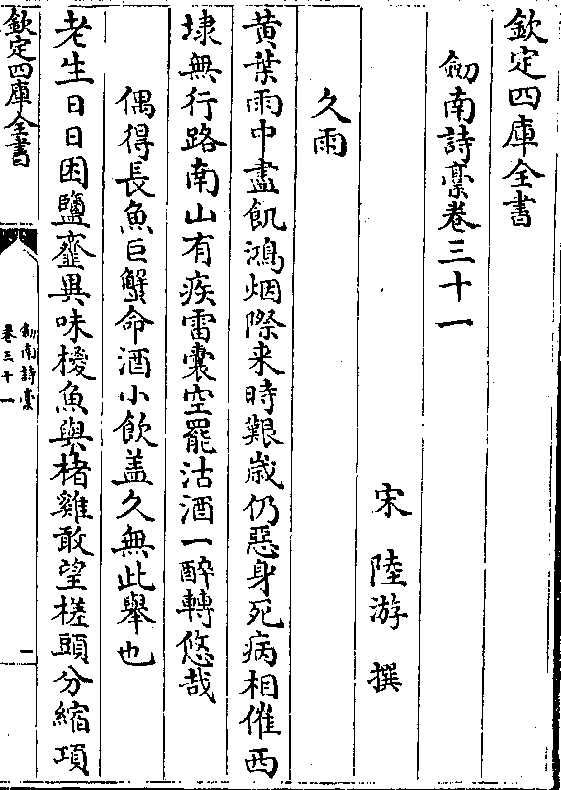 欽定四庫全書
劒南詩稾卷三十一
宋 陸游 撰
久雨
黄葉雨中盡飢鴻烟際来時艱歳仍惡身死病相催西
埭無行路南山有疾雷囊空罷沽酒一醉轉悠哉
偶得長魚巨蟹命酒小飲盖久無此舉也
老生日日困鹽虀異味㯶魚與楮雞敢望槎頭分縮項
欽定四庫全書
劒南詩稾
卷三十一
一